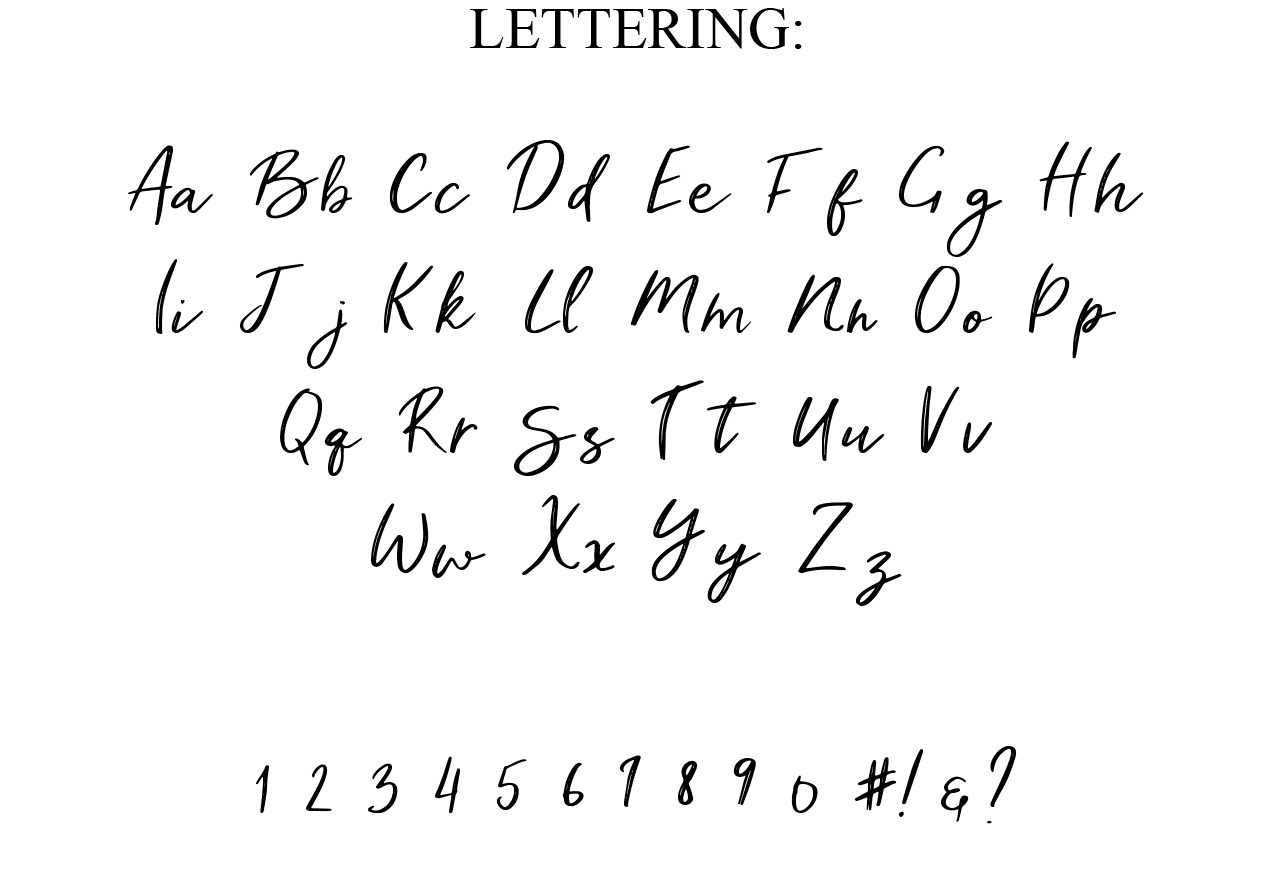 LETTERING:
Aa Bb Cc Dd Ee Ff Gg Hh
Ii Jj Kk Ll Mm Nn Oo Pp
Qq Rr Ss Tt Uu Vv
Ww Xx Yy Zz
1 2 3 4 5 6 7 8 9 0 #!&?